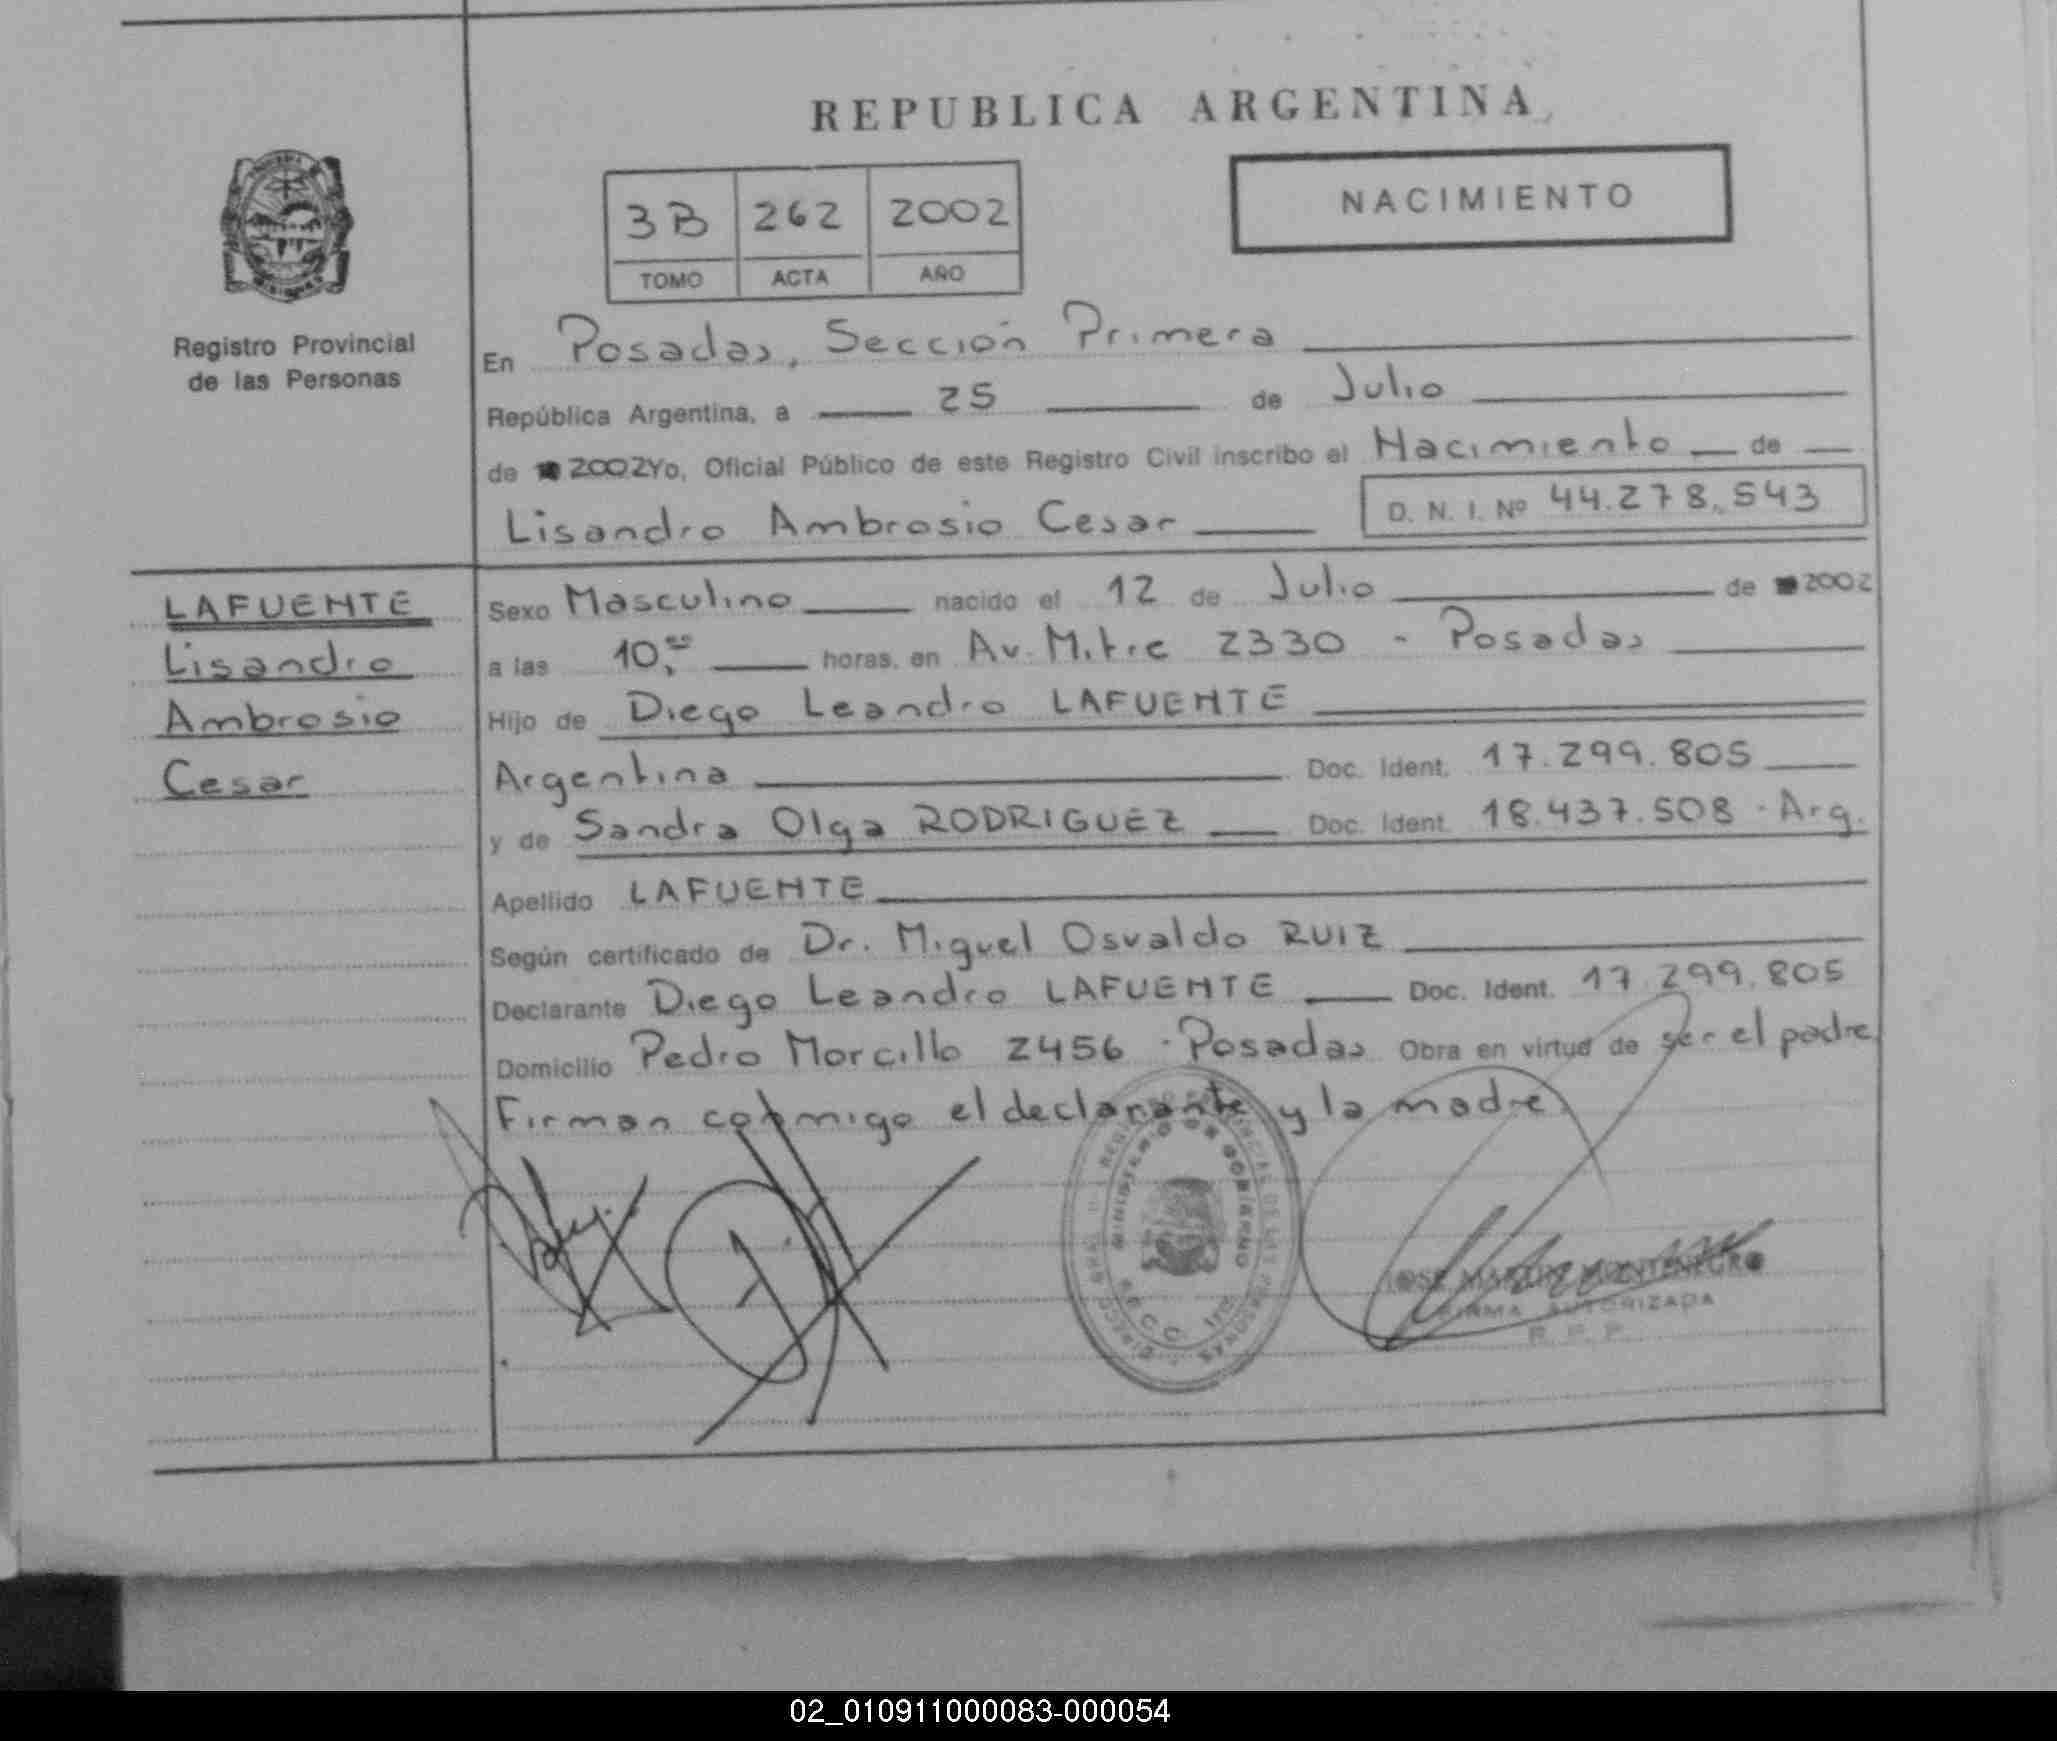 REPUBLICA ARGENTINA
NACIMIENTO
3B 262 2002
TOMO ACTA AÑO
Registro Provincial
de las Personas
En Posadas, Sección Primera
República Argentina, a 25 de Julio
de 2002 Yo, Oficial Público de este Registro Civil inscribo el Nacimiento de
Lisandro Ambrosio Cesar D. N. I. Nº 44.278.543
LAFUENTE
Lisandro
Ambrosio
Cesar
Sexo Masculino nacido el 12 de Julio de 2002
a las 10, horas, en Av. Mitre 2330 - Posadas
Hijo de Diego Leandro LAFUENTE
Argentina Doc. Ident. 17.299.805
y de Sandra Olga RODRIGUEZ Doc. Ident. 18.437.508 - Arg.
Apellido LAFUENTE
Según certificado de Dr. Miguel Osvaldo RUIZ
Declarante Diego Leandro LAFUENTE Doc. Ident. 17.299.805
Domicilio Pedro Morcillo 2456 - Posadas Obra en virtud de ser el padre
Firman conmigo el declarante y la madre
MINISTERIO DE GOBIERNO
JOSE MARTIN MONTENEGRO
FIRMA AUTORIZADA
R. P. P.
02_010911000083-000054